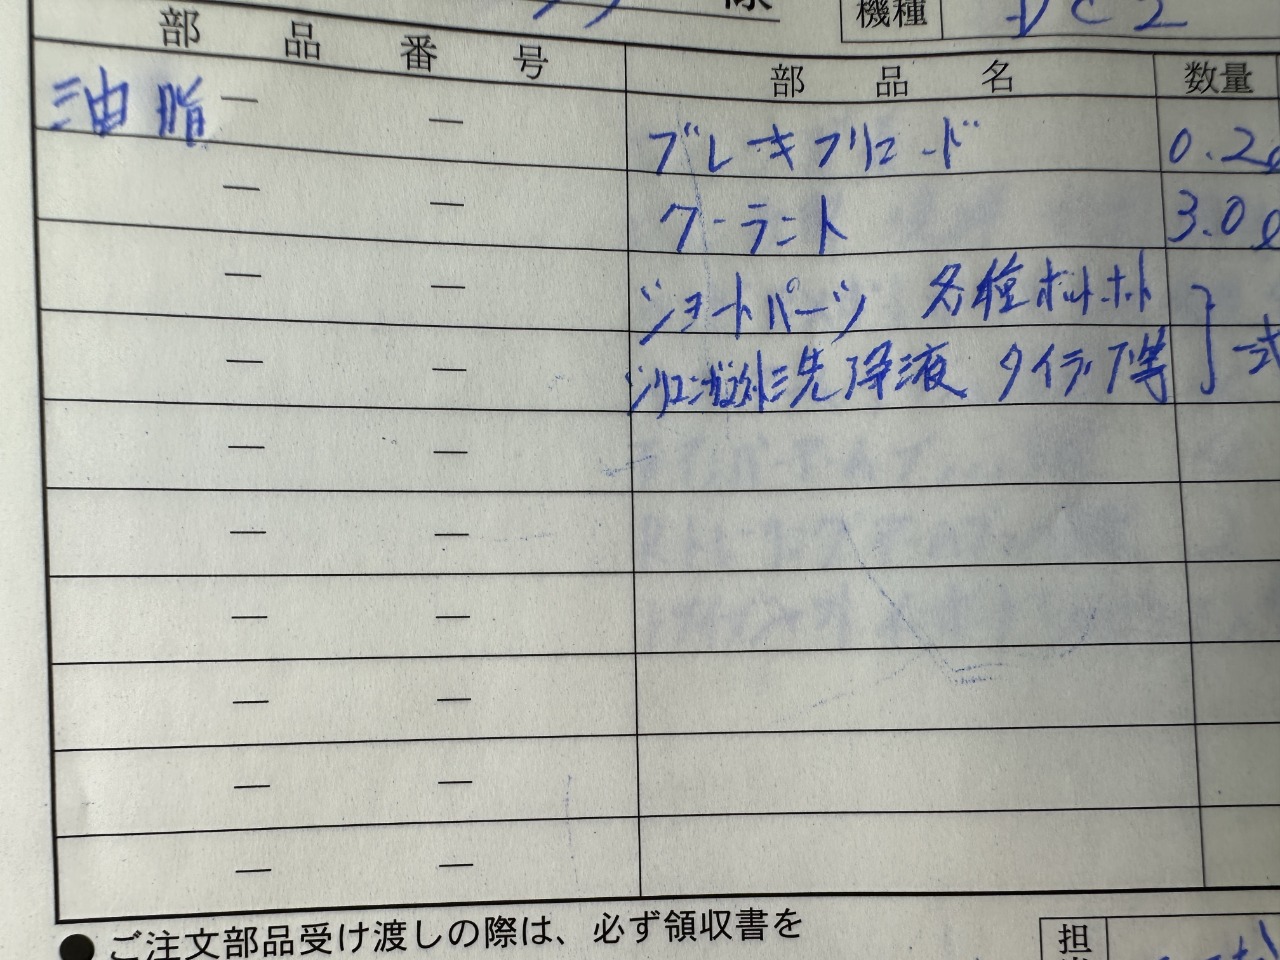 様 機種 DC2
部品番号 部品名 数量
油脂 ブレーキフリュード 0.2ℓ
クーラント 3.0ℓ
ショートパーツ 各種ボルト・ナット
シリコンガスケット 洗浄液 タイラップ等 一式
● ご注文部品受け渡しの際は、必ず領収書を
担